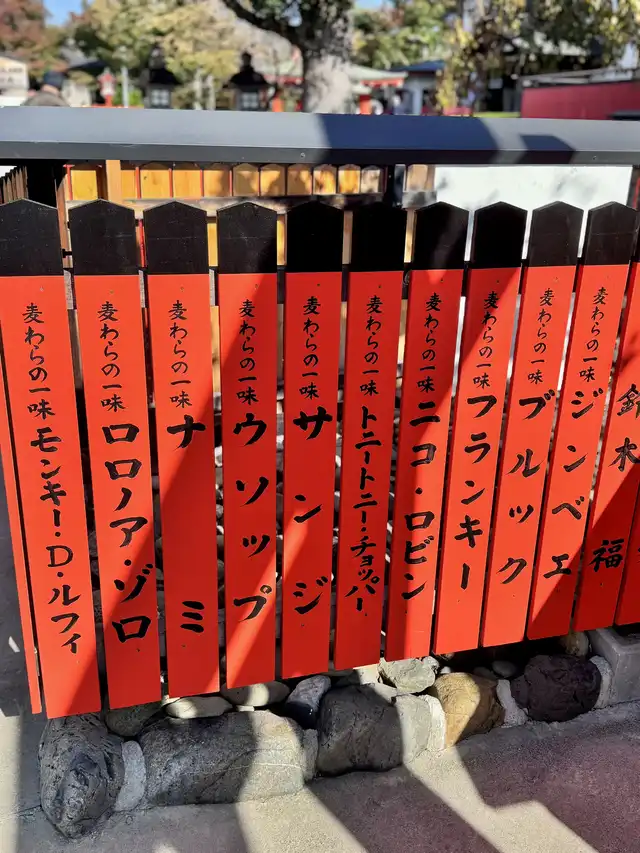 麦わらの一味 モンキー・D・ルフィ
麦わらの一味 ロロノア・ゾロ
麦わらの一味 ナミ
麦わらの一味 ウソップ
麦わらの一味 サンジ
麦わらの一味 トニートニー・チョッパー
麦わらの一味 ニコ・ロビン
麦わらの一味 フランキー
麦わらの一味 ブルック
麦わらの一味 ジンベエ
鈴木 福